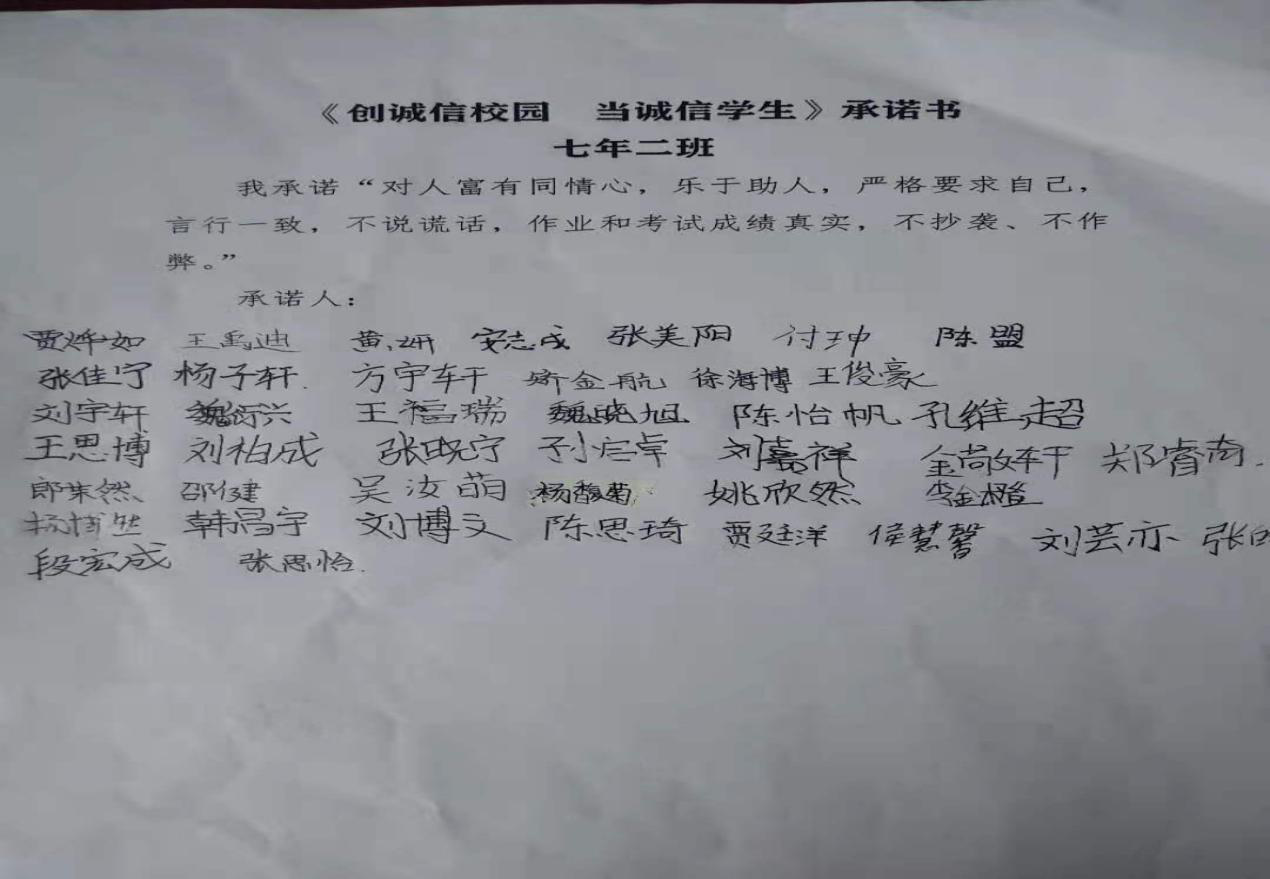 《创诚信校园 当诚信学生》承诺书
七年二班
我承诺“对人富有同情心，乐于助人，严格要求自己，
言行一致，不说谎话，作业和考试成绩真实，不抄袭、不作
弊。”
承诺人：
贾烨如 王禹迪 黄妍 安志成 张美阳 付珅 陈盟
张佳宁 杨子轩 方宇轩 金航 徐海博 王俊豪
刘宇轩 魏衍兴 王福瑞 魏晓旭 陈怡帆 孔维超
王思博 刘柏成 张晓宁 刘嘉祥 金尚轩 郑睿南
郎 然 邵健 吴汝萌 杨馥菊 姚欣然 李金橙
杨博然 韩昌宇 刘博文 陈思琦 贾廷洋 侯慧馨 刘芸亦 张
段宏成 张思怡